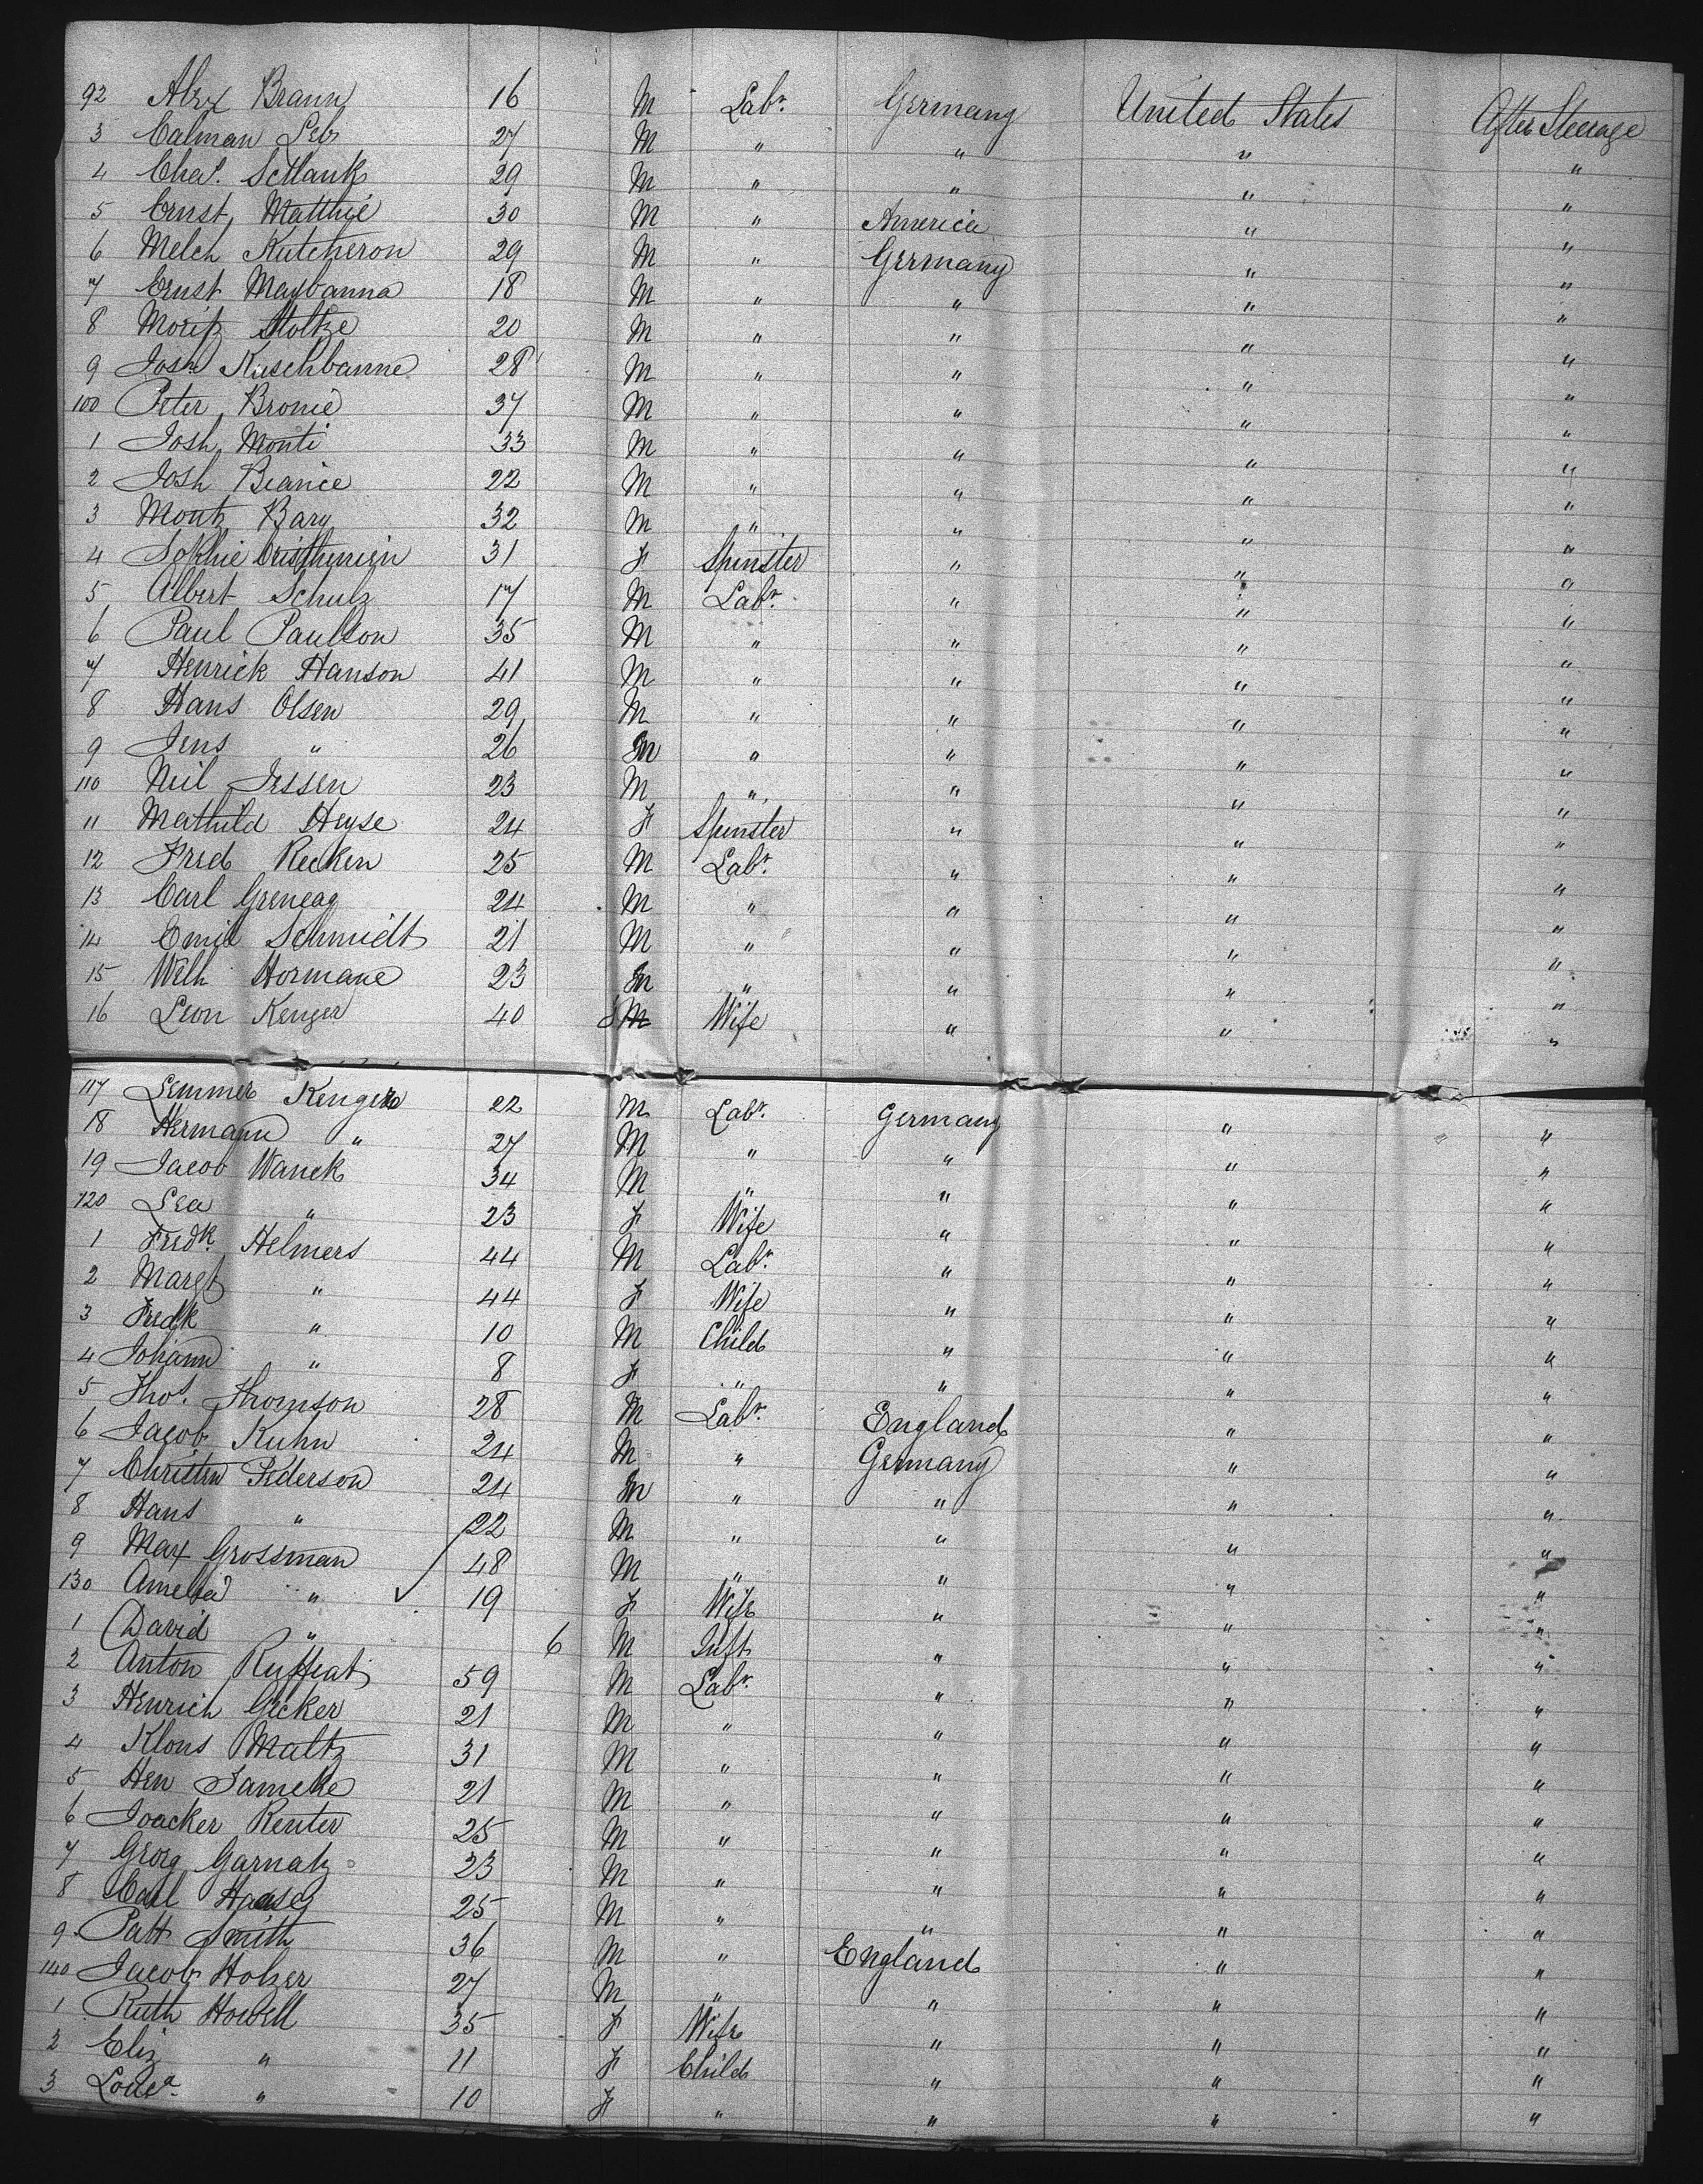 92 Alex Braun 16 M Labr. Germany United States After Steerage
3 Calman Leb 27 M " " " "
4 Chas. Schank 29 M " " " "
5 Ernst Matthie 30 M " America " "
6 Melch Kutcheron 29 M " Germany " "
7 Ernst Maybanna 18 M " " " "
8 Moritz Stoltze 20 M " " " "
9 Josh Kuschbanne 28 M " " " "
100 Peter Bronie 37 M " " " "
1 Josh Monti 33 M " " " "
2 Josh Beanie 22 M " " " "
3 Montz Bary 32 M " " " "
4 Sophie 31 F Spinster " " "
5 Albert Schulz 17 M Labr. " " "
6 Paul Paulson 35 M " " " "
7 Henrick Hanson 41 M " " " "
8 Hans Olsen 29 M " " " "
9 Jens " 26 M " " " "
110 Neil Jessen 23 M " " " "
11 Mathild Heyse 24 F Spinster " " "
12 Fred Recken 25 M Labr. " " "
13 Carl Greneag 24 M " " " "
14 Emil Schmidt 21 M " " " "
15 Welh Hormane 23 M " " " "
16 Leon Kenger 40 F Wife " " "
117 Lemmer Kenger 22 M Labr. Germany " "
18 Hermann " 27 M " " " "
19 Jacob Wanek 34 M " " " "
120 Lea " 23 F Wife " " "
1 Fredk. Helmers 44 M Labr. " " "
2 Margt " 44 F Wife " " "
3 Fredk " 10 M Child " " "
4 Johann " 8 F " " " "
5 Thos. Thomson 28 M Labr. England " "
6 Jacob Kuhn 24 M " Germany " "
7 Christen Pederson 24 M " " " "
8 Hans " 22 M " " " "
9 Max Grossman 48 M " " " "
130 Amelia " 19 F Wife " " "
1 David " 6 M Inft " " "
2 Anton 59 M Labr. " " "
3 Henrich Gecker 21 M " " " "
4 Klous Maltz 31 M " " " "
5 Hen Jameke 21 M " " " "
6 Joacker Renter 25 M " " " "
7 Georg Garnatz 23 M " " " "
8 Carl Haase 25 M " " " "
9 Patt Smith 36 M " England " "
140 Jacob Holzer 27 M " " " "
1 Ruth Howell 35 F Wife " " "
2 Eliz " 11 F Child " " "
3 Louisa. " 10 F " " " "